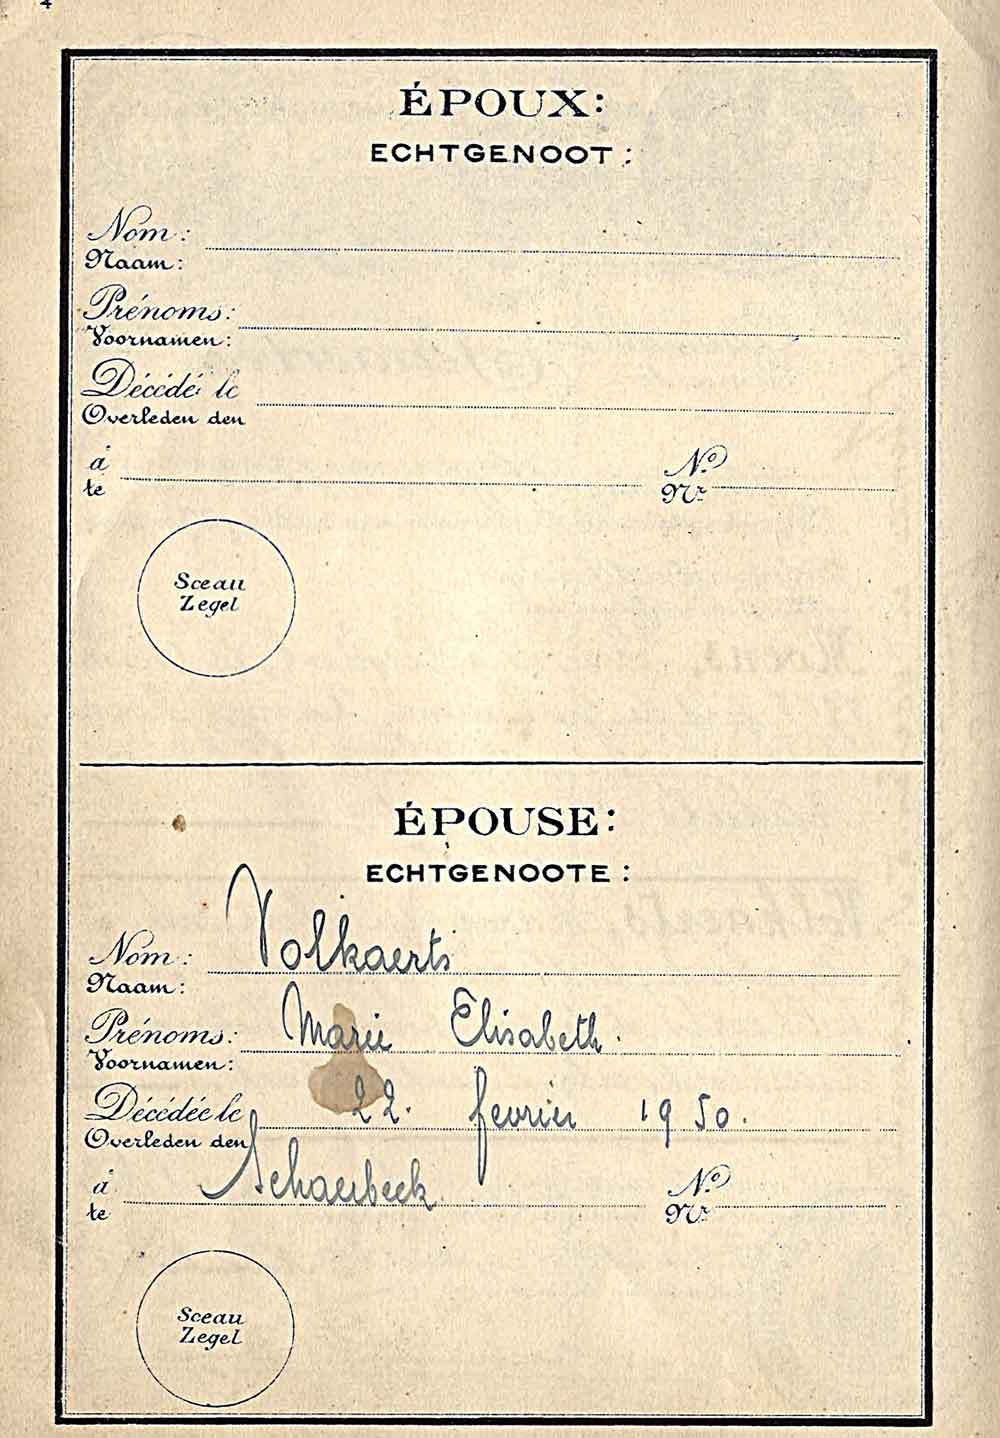 4
ÉPOUX:
ECHTGENOOT :
Nom :
Naam :
Prénoms :
Voornamen :
Décédé le
Overleden den
à
te
No
Nr
Sceau
Zegel
ÉPOUSE:
ECHTGENOOTE :
Nom : Volkaerts
Naam :
Prénoms : Marie Elisabeth.
Voornamen :
Décédée le 22. fevrier 1950.
Overleden den
à Schaerbeek
te
No
Nr
Sceau
Zegel